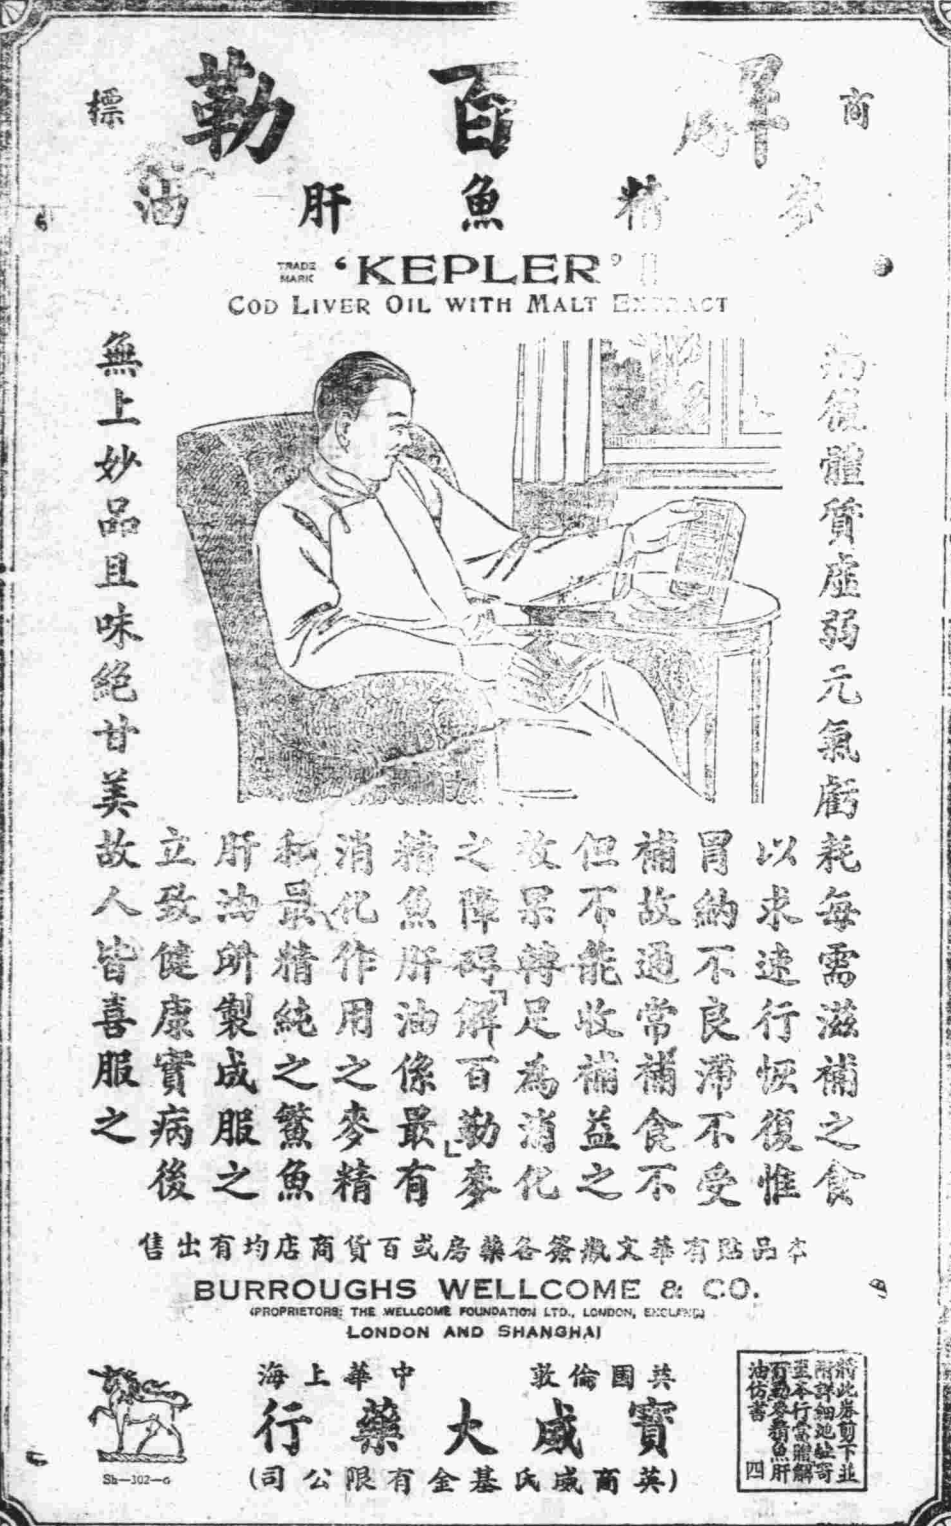 商 解百勒 標
麥精魚肝油
TRADE MARK 'KEPLER'
COD LIVER OIL WITH MALT EXTRACT
病後體質虛弱元氣虧耗每需滋補之食
以求速行恢復惟
胃納不良滯不受
補故通常補食不
但不能收補益之
效果轉足為消化
之障碍「解百勒」麥
精魚肝油係最有
消化作用之麥精
和最精純之鱉魚
肝油所製成服之
立致健康實病後
無上妙品且味絕甘美故人皆喜服之
本品貼有華文瓶簽各藥房或百貨商店均有出售
BURROUGHS WELLCOME & CO.
(PROPRIETORS: THE WELLCOME FOUNDATION LTD., LONDON, ENGLAND)
LONDON AND SHANGHAI
英國倫敦 中華上海
寶威大藥行
(英商威氏基金有限公司)
Sh—102—G
將此券剪下並
附詳細地址寄
至本行當贈解
百勒麥精魚肝
油仿書 四